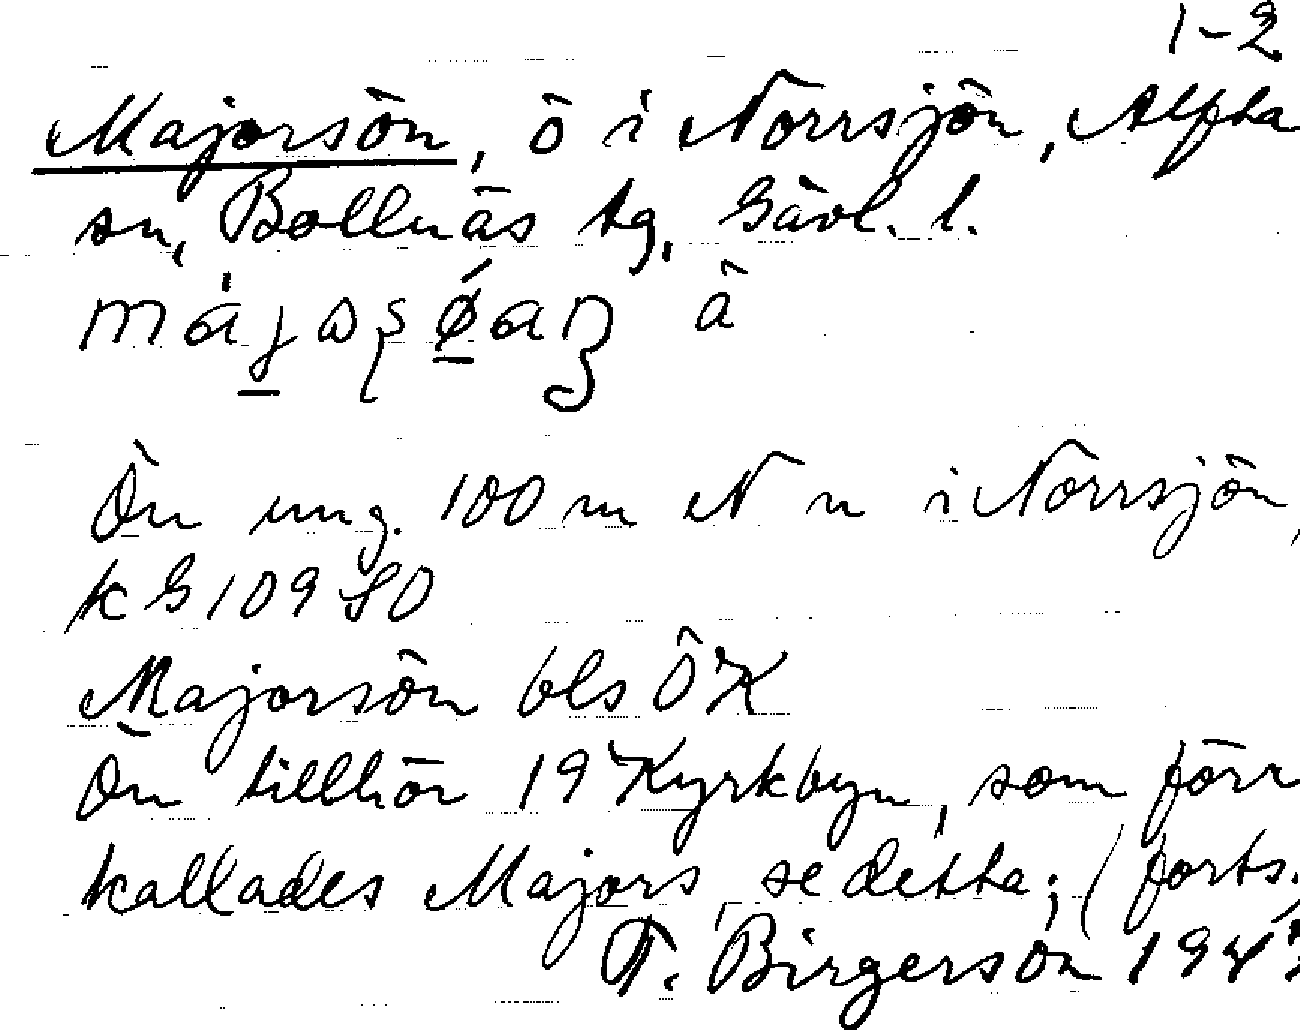 1-2
Majorsön, ö i Norrsjön, Alfta
sn, Bollnäs tg, Gävl. l.
ä
Ön ung. 100 m N n i Norrsjön,
k G 109 SO
Majorsön bls ÖK
Ön tillhör 19 Kyrkbyn, som förr
kallades Majors, se detta; (forts.
T. Birgerson